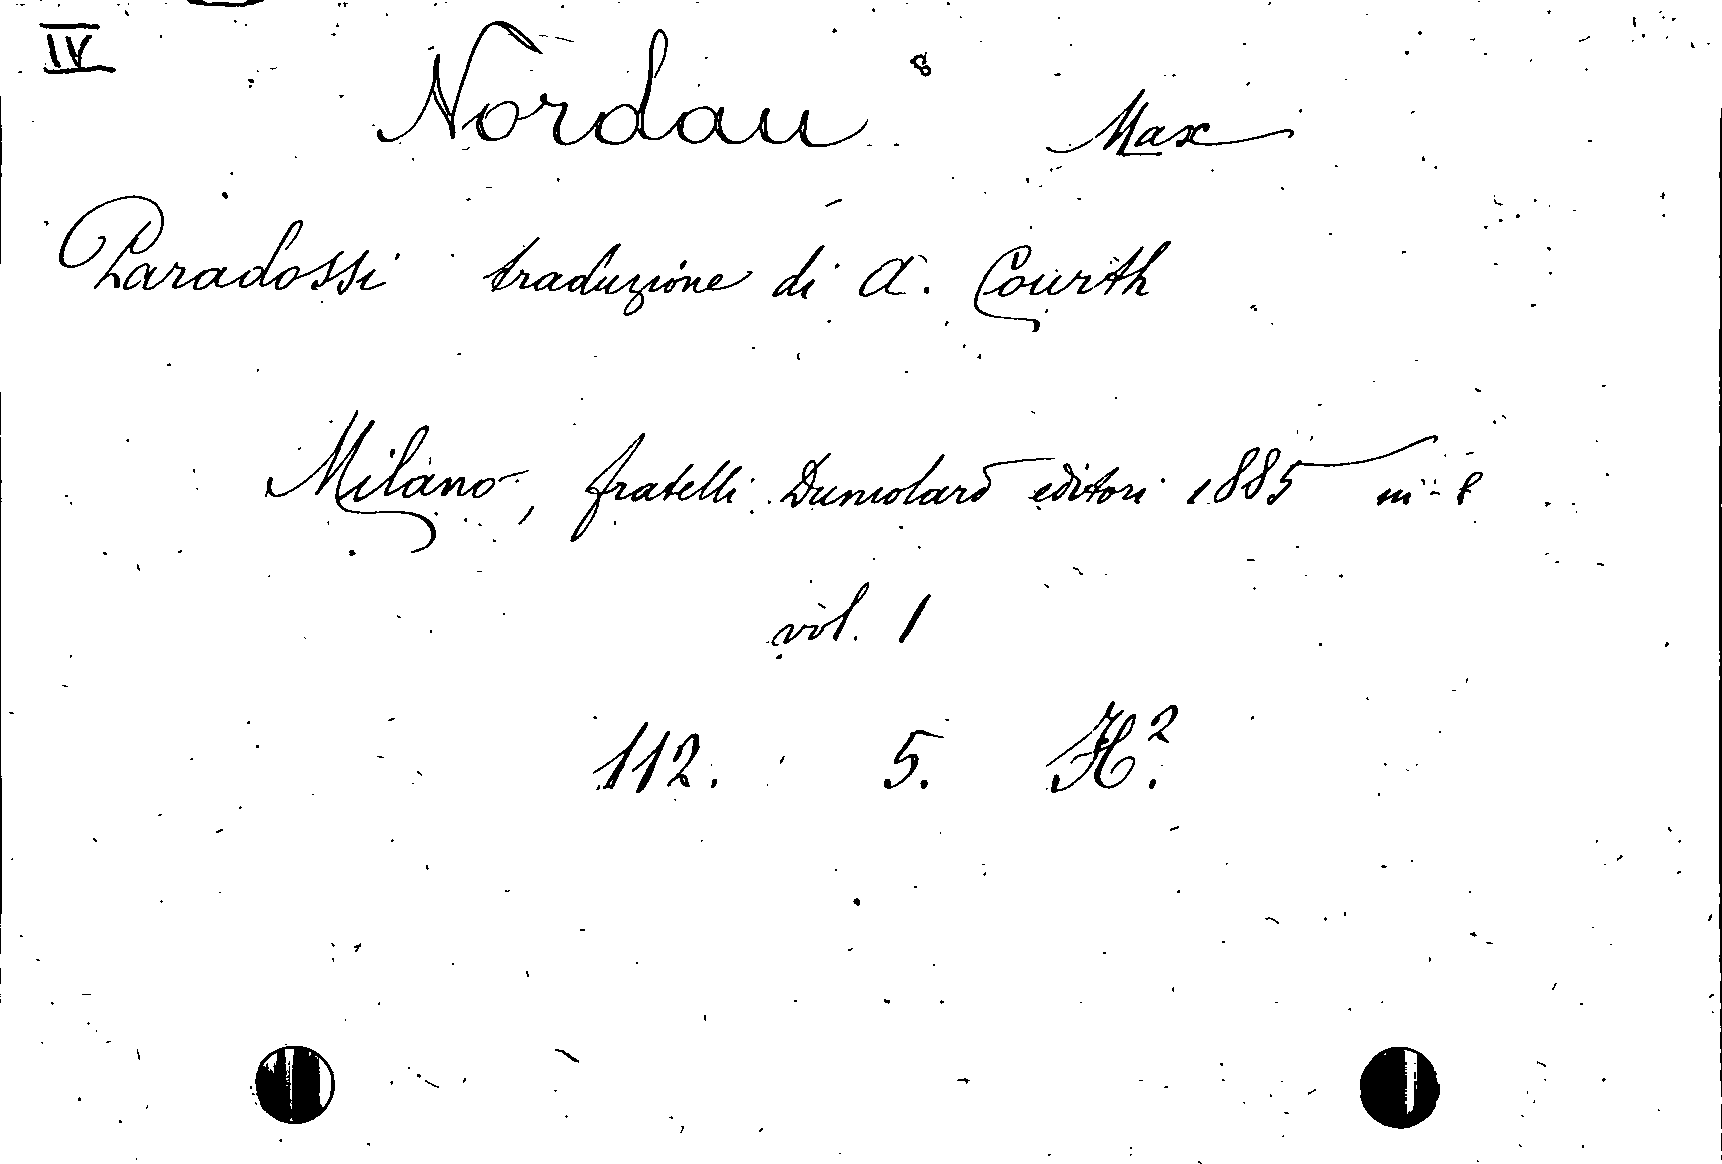 IV
Nordau Max
8
Paradossi traduzione di A. Courth
Milano, fratelli Dumolard editori 1885 in-8
vol. 1
112. 5. H².